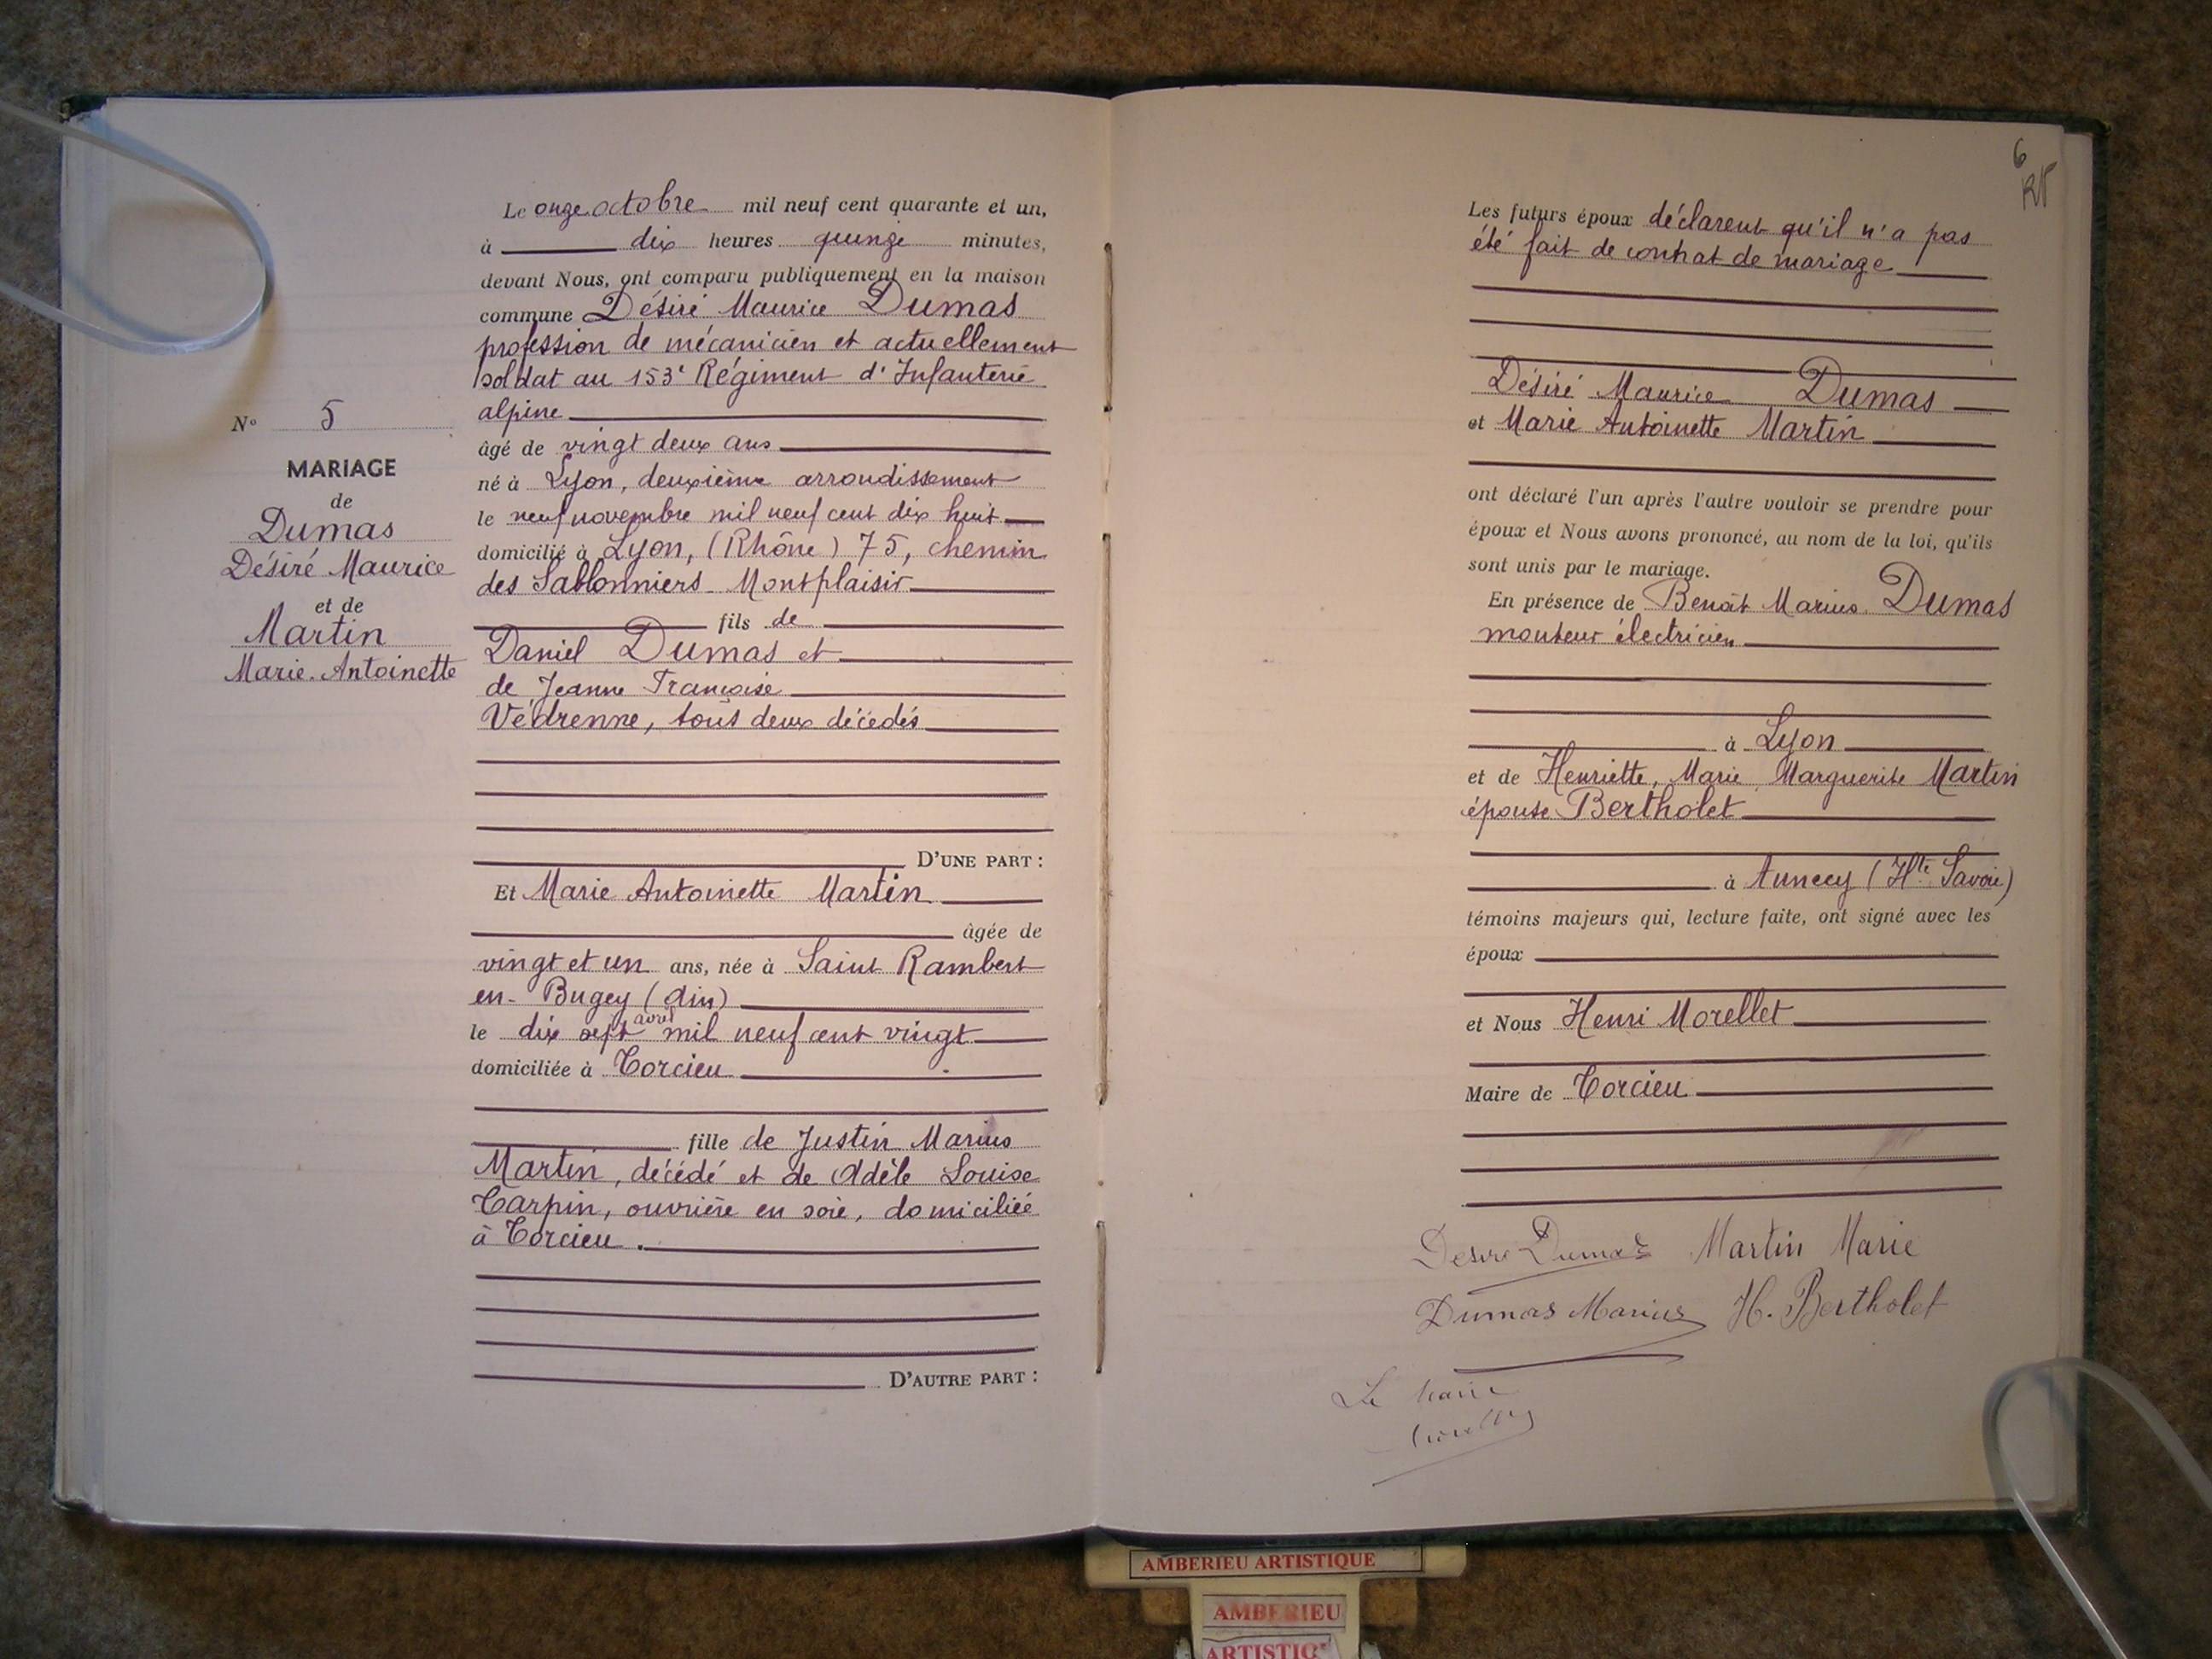 Le onze octobre mil neuf cent quarante et un,
à dix heures quinze minutes,
devant Nous, ont comparu publiquement en la maison
commune Désiré Maurice Dumas
profession de mécanicien et actuellement
soldat au 153e Régiment d'Infanterie
alpine
âgé de vingt deux ans
né à Lyon, deuxième arrondissement
le neuf novembre mil neuf cent dix huit
domicilié à Lyon, (Rhône) 75, chemin
des Sablonniers - Montplaisir
fils de
Daniel Dumas et
de Jeanne Françoise
Védrenne, tous deux décédés
D'UNE PART :
Et Marie Antoinette Martin
âgée de
vingt et un ans, née à Saint Rambert
en-Bugey (Ain)
le dix sept avril mil neuf cent vingt
domiciliée à Torcieu
fille de Justin Marius
Martin, décédé et de Adèle Louise
Carpin, ouvrière en soie, domiciliée
à Torcieu.
D'AUTRE PART :
N° 5
MARIAGE
de
Dumas
Désiré Maurice
et de
Martin
Marie-Antoinette
6
Les futurs époux déclarent qu'il n'a pas
été fait de contrat de mariage
Désiré Maurice Dumas
et Marie Antoinette Martin
ont déclaré l'un après l'autre vouloir se prendre pour
époux et Nous avons prononcé, au nom de la loi, qu'ils
sont unis par le mariage.
En présence de Benoît Marius Dumas
monteur électricien
à Lyon
et de Henriette, Marie, Marguerite Martin
épouse Bertholet
à Annecy (Hte Savoie)
témoins majeurs qui, lecture faite, ont signé avec les
époux
et Nous Henri Morellet
Maire de Torcieu
Desire Dumas Martin Marie
Dumas Marius H. Bertholet
Le Maire
AMBERIEU ARTISTIQUE
AMBERIEU